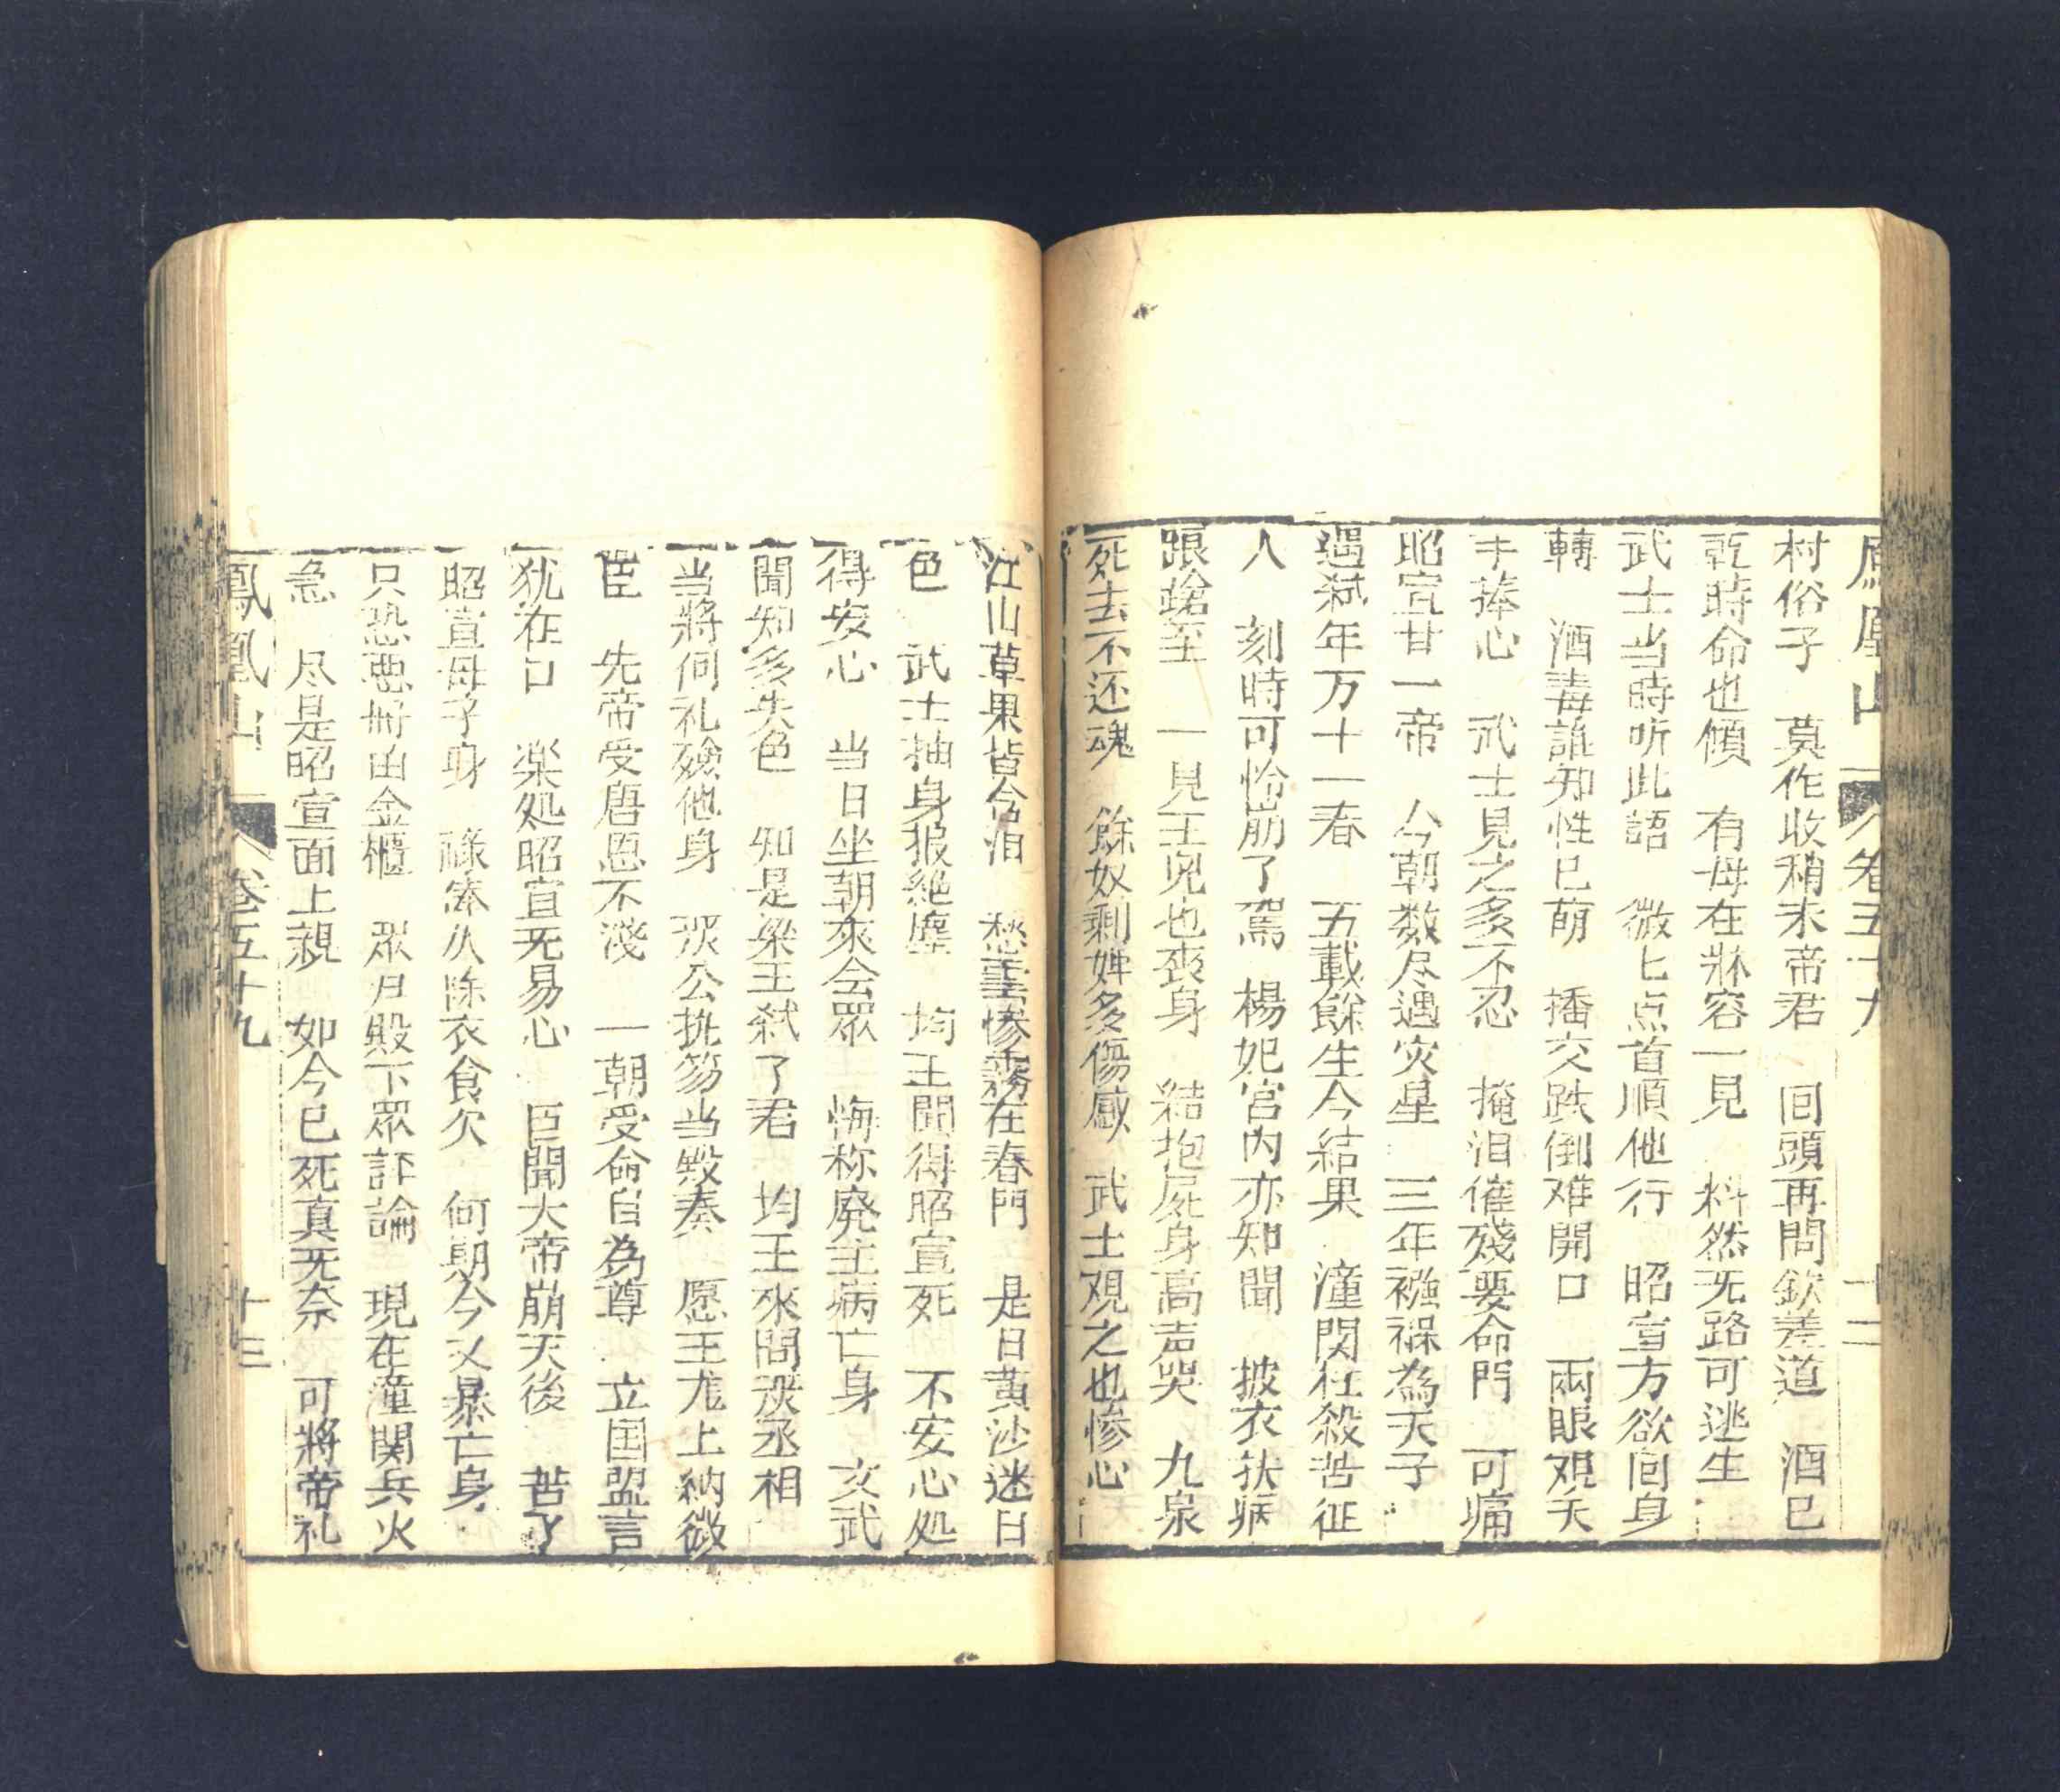 鳳凰山 卷五十九 十二
村俗子 莫作收稍末帝君 回頭再問欽差道 酒已
乾時命也傾 有母在牀容一見 料然无路可逃生
武士当時听此語 微匕点首順他行 昭宣方欲回身
轉 酒毒誰知性已萌 播交跌倒难開口 兩眼观天
手捧心 武士見之多不忍 掩泪催殘要命門 可痛
昭宣廿一帝 今朝数尽遇灾星 三年襁褓為天子
遇弑年方十一春 五載餘生今結果 潼関枉殺苦征
人 刻時可怜崩了駕 楊妃宮内亦知聞 披衣扶病
踉蹌至 一見王兒也喪身 結抱屍身高声哭 九泉
死去不还魂 餘奴剩婢多傷感 武士观之也慘心
江山草果皆含泪 愁雲惨霧在春門 是日黃沙迷日
色 武士抽身报絶塵 均王聞得昭宣死 不安心处
得安心 当日坐朝來会眾 悔称廃主病亡身 文武
聞知多失色 知是梁王弑了君 均王來問 丞相
当將何礼殮他身 公执笏当殿奏 愿王尤上納微
臣 先帝受唐恩不淺 一朝受命自為尊 立国盟言
犹在口 楽処昭宣无易心 臣聞大帝崩天後 苦了
昭宣母子身 祿寒久除衣食欠 何期今又暴亡身
只恐惡冊由金櫃 眾口殿下眾評論 現在潼関兵火
急 尽是昭宣面上親 如今已死真无奈 可將帝礼
鳳凰山 卷五十九 十三